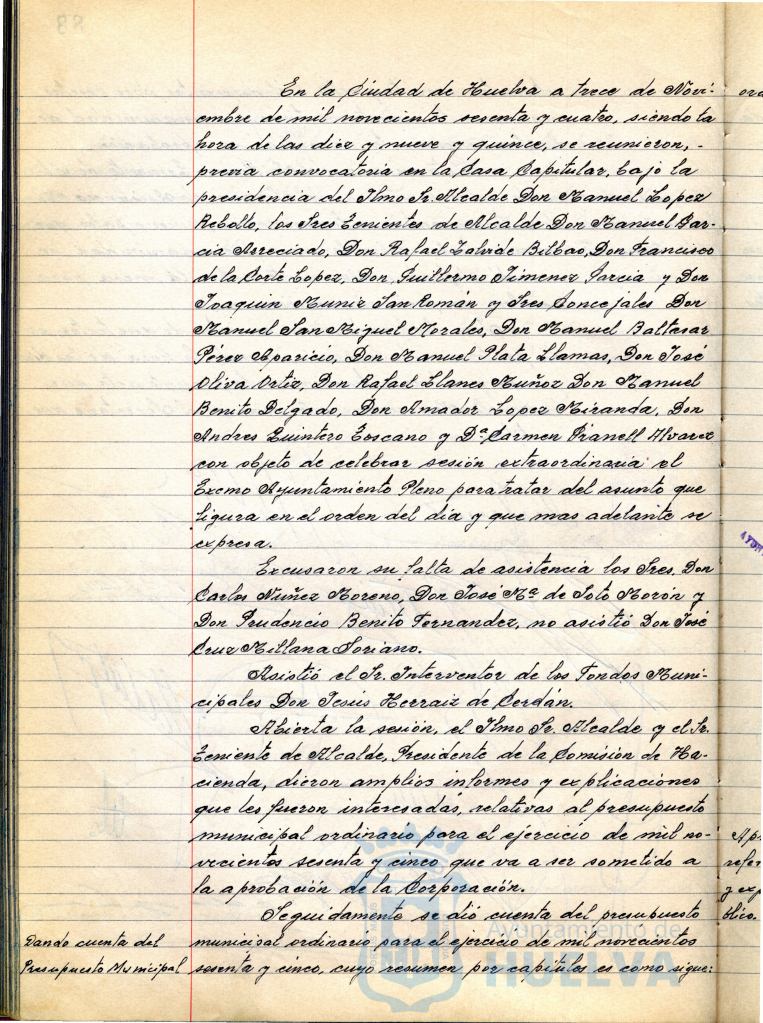 En la Ciudad de Huelva a trece de Novi-
embre de mil novecientos sesenta y cuatro, siendo la
hora de las diez y nueve y quince, se reunieron, -
previa convocatoria en la Casa Capitular, bajo la
presidencia del Ilmo Sr. Alcalde Don Manuel Lopez
Rebollo, los Sres Tenientes de Alcalde Don Manuel Gar-
cia Asreciado, Don Rafael Zalvide Bilbao, Don Francisco
de la Corte Lopez, Don Guillermo Jimenez Garcia y Don
Joaquin Muniz San Román y Sres Concejales Don
Manuel San Miguel Morales, Don Manuel Baltasar
Pérez Aparicio, Don Manuel Plata Llamas, Don José
Oliva Ortiz, Don Rafael Llanes Muñoz Don Manuel
Benito Delgado, Don Amador Lopez Miranda, Don
Andres Quintero Toscano y Dª Carmen Pranell Alvarez
con objeto de celebrar sesión extraordinaria el
Excmo Ayuntamiento Pleno para tratar del asunto que
figura en el orden del dia y que mas adelante se
expresa.
Excusaron su falta de asistencia los Sres. Don
Carlos Nuñez Moreno, Don José Mª de Soto Morón y
Don Prudencio Benito Fernandez, no asistió Don José
Cruz Millana Soriano.
Asistió el Sr. Interventor de los Fondos Muni-
cipales Don Jesús Herraiz de Cerdán.
Abierta la sesión, el Ilmo Sr. Alcalde y el Sr.
Teniente de Alcalde, Presidente de la Comisión de Ha-
cienda, dieron amplios informes y explicaciones
que les fueron interesadas, relativas al presupuesto
municipal ordinario para el ejercicio de mil no-
vecientos sesenta y cinco que va a ser sometido a
la aprobación de la Corporación.
Seguidamente se dió cuenta del presupuesto
Dando cuenta del
Presupuesto Municipal
municipal ordinario para el ejercicio de mil novecientos
sesenta y cinco, cuyo resumen por capitulos es como sigue:
Ayuntamiento de
HUELVA